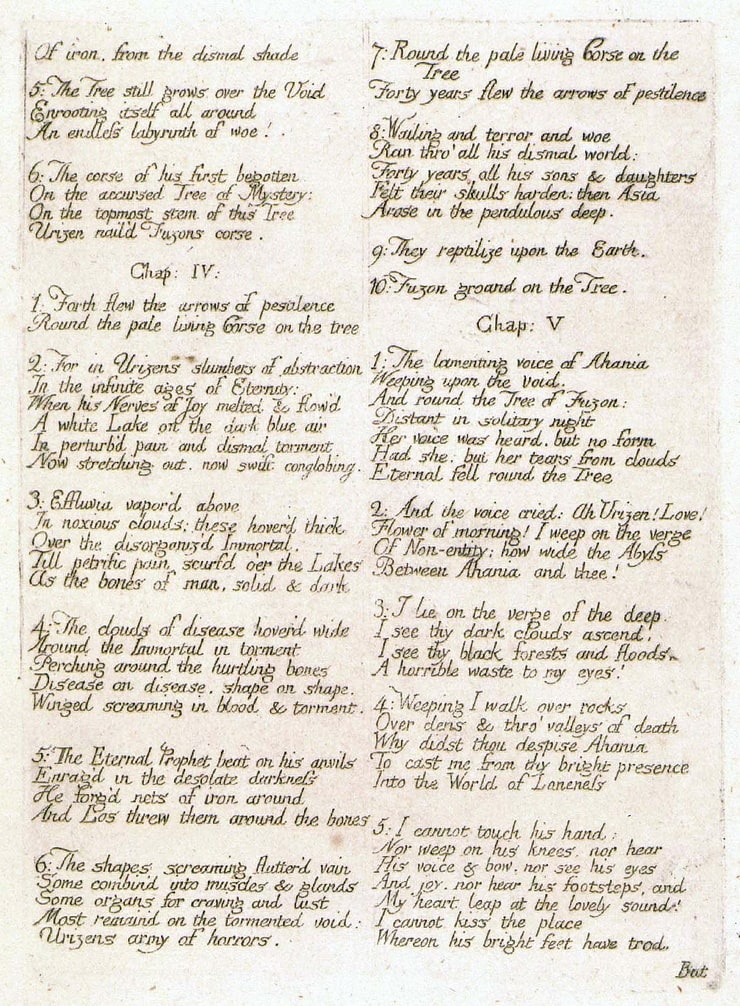 Of iron, from the dismal shade
5: The Tree still grows over the Void
Enrooting itself all around
An endless labyrinth of woe!
6: The corse of his first begotten
On the accursed Tree of Mystery:
On the topmost stem of this Tree
Urizen nail'd Fuzons corse.
Chap: IV:
1: Forth flew the arrows of pestilence
Round the pale living Corse on the tree
2: For in Urizens slumbers of abstraction
In the infinite ages of Eternity:
When his Nerves of Joy melted & flow'd
A white Lake on the dark blue air
In perturb'd pain and dismal torment
Now stretching out, now swift conglobing.
3: Effluvia vapor'd above
In noxious clouds; these hover'd thick
Over the disorganiz'd Immortal,
Till petrific pain scurf'd o'er the Lakes
As the bones of man, solid & dark
4: The clouds of disease hover'd wide
Around the Immortal in torment
Perching around the hurtling bones
Disease on disease, shape on shape,
Winged screaming in blood & torment.
5: The Eternal Prophet beat on his anvils
Enrag'd in the desolate darkness
He forg'd nets of iron around
And Los threw them around the bones
6: The shapes screaming flutter'd vain
Some combin'd into muscles & glands
Some organs for craving and lust
Most remain'd on the tormented void:
Urizens army of horrors.
7: Round the pale living Corse on the
Tree
Forty years flew the arrows of pestilence
8: Wailing and terror and woe
Ran thro' all his dismal world:
Forty years all his sons & daughters
Felt their skulls harden: then Asia
Arose in the pendulous deep.
9: They reptilize upon the Earth.
10: Fuzon groand on the Tree.
Chap: V
1: The lamenting voice of Ahania
Weeping upon the void.
And round the Tree of Fuzon:
Distant in solitary night
Her voice was heard, but no form
Had she: but her tears from clouds
Eternal fell round the Tree
2: And the voice cried: Ah Urizen! Love!
Flower of morning! I weep on the verge
Of Non-entity; how wide the Abyss
Between Ahania and thee!
3: I lie on the verge of the deep.
I see thy dark clouds ascend,
I see thy black forests and floods,
A horrible waste to my eyes!
4: Weeping I walk over rocks
Over dens & thro' valleys of death
Why didst thou despise Ahania
To cast me from thy bright presence
Into the World of Loneness
5: I cannot touch his hand:
Nor weep on his knees, nor hear
His voice & bow, nor see his eyes
And joy, nor hear his footsteps, and
My heart leap at the lovely sound!
I cannot kiss the place
Whereon his bright feet have trod,
But